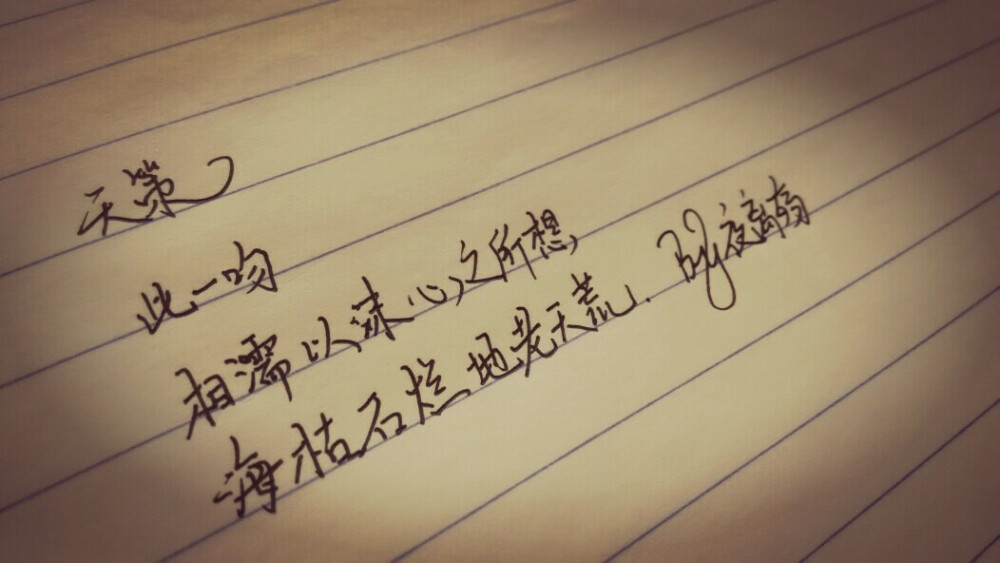 天策
此一吻
相濡以沫 心之所想,
海枯石烂 地老天荒. By夜离弱